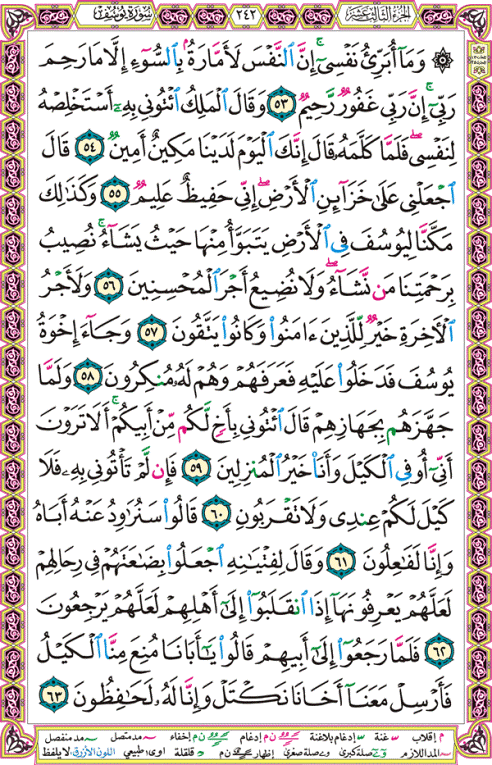 الجزء الثالث عشر
٢٤٢
سورة يوسف
۞ وَمَآ أُبَرِّئُ نَفْسِيٓ ۚ إِنَّ ٱلنَّفْسَ لَأَمَّارَةُۢ بِٱلسُّوٓءِ إِلَّا مَا رَحِمَ
رَبِّيٓ ۚ إِنَّ رَبِّي غَفُورٌ رَّحِيمٌ ٥٣ وَقَالَ ٱلْمَلِكُ ٱئْتُونِي بِهِۦٓ أَسْتَخْلِصْهُ
لِنَفْسِي ۖ فَلَمَّا كَلَّمَهُۥ قَالَ إِنَّكَ ٱلْيَوْمَ لَدَيْنَا مَكِينٌ أَمِينٌ ٥٤ قَالَ
ٱجْعَلْنِي عَلَىٰ خَزَآئِنِ ٱلْأَرْضِ ۖ إِنِّي حَفِيظٌ عَلِيمٌ ٥٥ وَكَذَٰلِكَ
مَكَّنَّا لِيُوسُفَ فِي ٱلْأَرْضِ يَتَبَوَّأُ مِنْهَا حَيْثُ يَشَآءُ ۚ نُصِيبُ
بِرَحْمَتِنَا مَن نَّشَآءُ ۖ وَلَا نُضِيعُ أَجْرَ ٱلْمُحْسِنِينَ ٥٦ وَلَأَجْرُ
ٱلْأٓخِرَةِ خَيْرٌ لِّلَّذِينَ ءَامَنُوا۟ وَكَانُوا۟ يَتَّقُونَ ٥٧ وَجَآءَ إِخْوَةُ
يُوسُفَ فَدَخَلُوا۟ عَلَيْهِ فَعَرَفَهُمْ وَهُمْ لَهُۥ مُنكِرُونَ ٥٨ وَلَمَّا
جَهَّزَهُم بِجَهَازِهِمْ قَالَ ٱئْتُونِي بِأَخٍ لَّكُم مِّنْ أَبِيكُمْ ۚ أَلَا تَرَوْنَ
أَنِّيٓ أُوفِي ٱلْكَيْلَ وَأَنَا۠ خَيْرُ ٱلْمُنزِلِينَ ٥٩ فَإِن لَّمْ تَأْتُونِي بِهِۦ فَلَا
كَيْلَ لَكُمْ عِندِي وَلَا تَقْرَبُونِ ٦٠ قَالُوا۟ سَنُرَٰوِدُ عَنْهُ أَبَاهُ
وَإِنَّا لَفَٰعِلُونَ ٦١ وَقَالَ لِفِتْيَٰنِهِ ٱجْعَلُوا۟ بِضَٰعَتَهُمْ فِي رِحَالِهِمْ
لَعَلَّهُمْ يَعْرِفُونَهَآ إِذَا ٱنقَلَبُوٓا۟ إِلَىٰٓ أَهْلِهِمْ لَعَلَّهُمْ يَرْجِعُونَ
٦٢ فَلَمَّا رَجَعُوٓا۟ إِلَىٰٓ أَبِيهِمْ قَالُوا۟ يَٰٓأَبَانَا مُنِعَ مِنَّا ٱلْكَيْلُ
فَأَرْسِلْ مَعَنَآ أَخَانَا نَكْتَلْ وَإِنَّا لَهُۥ لَحَٰفِظُونَ ٦٣
م إقلاب س غنة س إدغام بلاغنة ن م إدغام ن م إخفاء مد متصل مد منفصل
المد اللازم صلة كبرى صلة صغرى إظهار قلقلة اوى: طبيعي اللون الأزرق: لا يلفظ